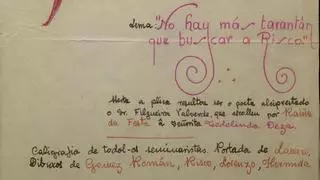 Lema: "No hay más tarantán
que buscar a Risco."
Nesta a pluma resultou ser o poeta aleixpretado
o Sr. Filgueira Valverde, que escolleu por Raíña
da Festa á Señorita Teodolinda Deza.
Caligrafía de todol-os seminaristas. Portada de
Dibuxos de Gomez Román, Risco, Lorenzo, Hermida